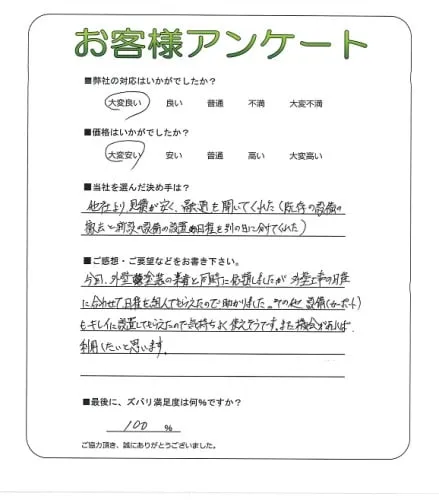 お客様アンケート
■弊社の対応はいかがでしたか?
大変良い 良い 普通 不満 大変不満
■価格はいかがでしたか?
大変安い 安い 普通 高い 大変高い
■当社を選んだ決め手は?
他社より見積が安く、融通を聞いてくれた(既存の設備の
撤去と新設の設備の設置の日程を別の日に分けてくれた)
■ご感想・ご要望などをお書き下さい。
今回、外壁塗装の業者と同時に依頼しましたが外壁工事の日程
に合わせて日程を組んでもらえたので助かりました。その他設備(カーポート)
もキレイに設置してもらえたので気持ちよく使えそうです。また機会があれば、
利用したいと思います。
■最後に、ズバリ満足度は何%ですか?
100 %
ご協力頂き、誠にありがとうございました。